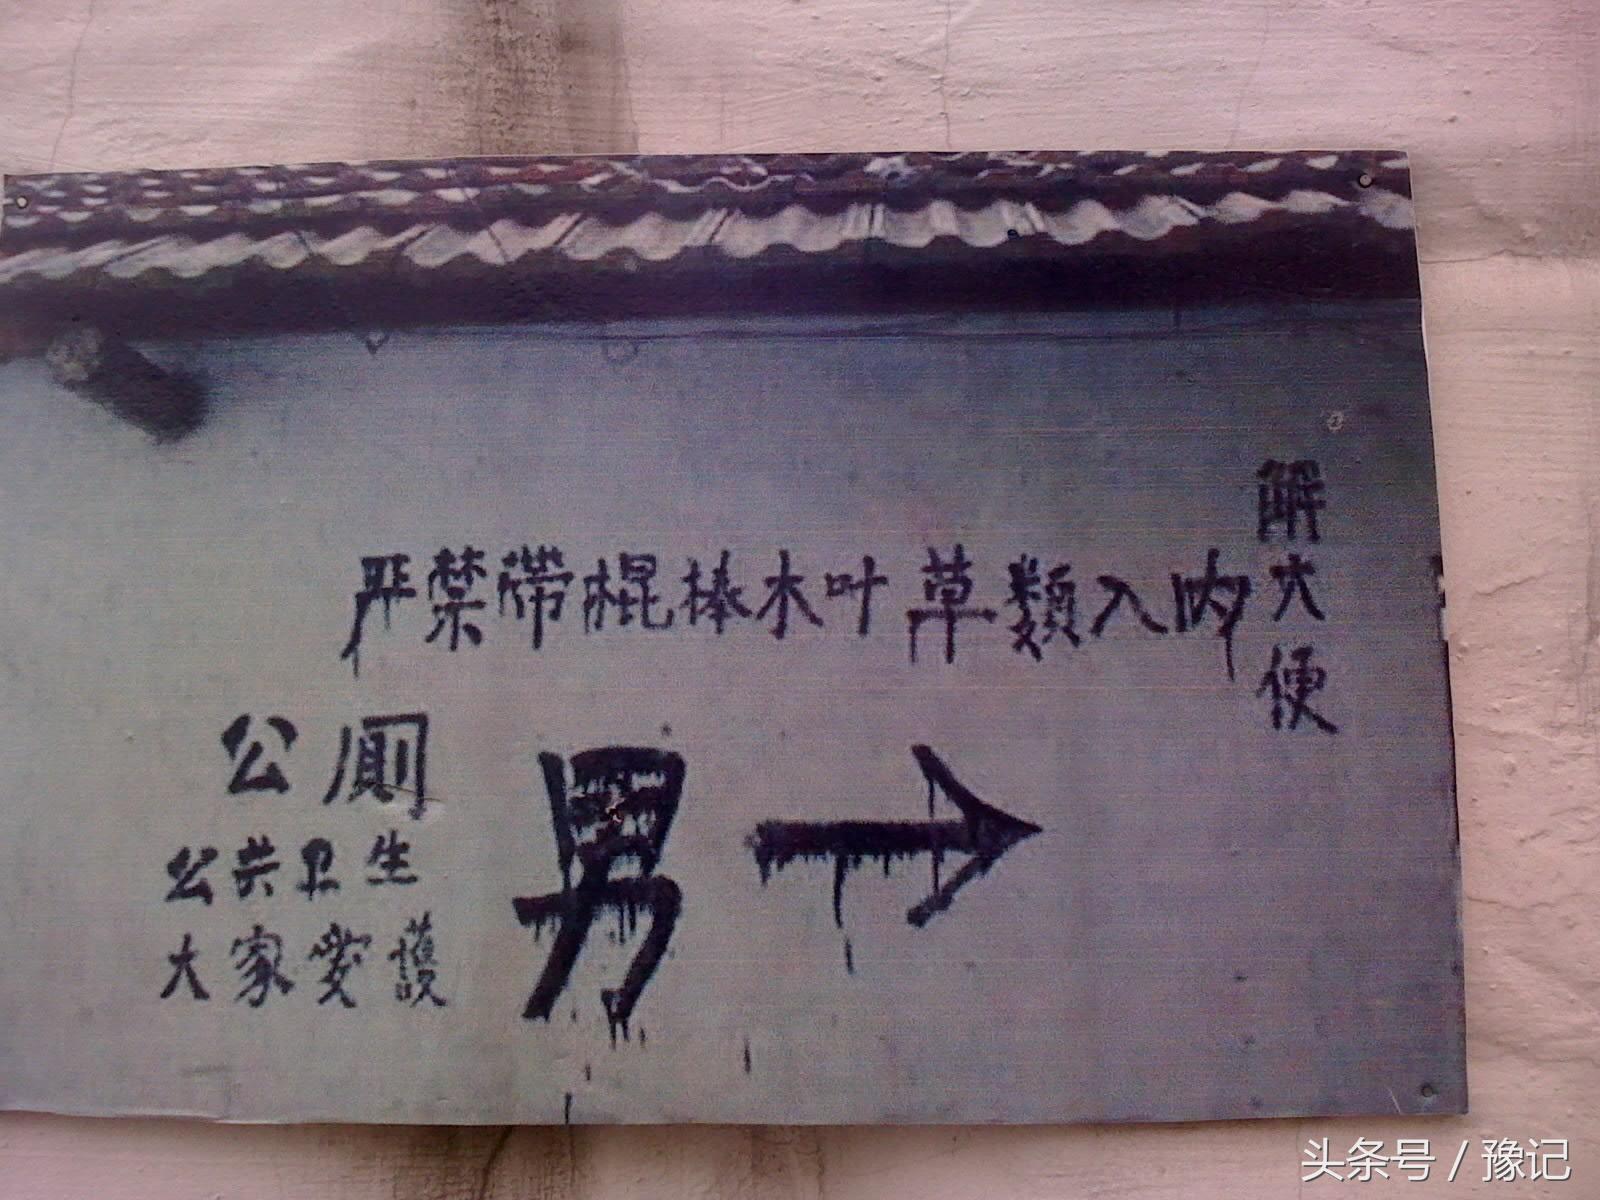 严禁带棍棒木叶草類入内
解大便
公厠
公共卫生
大家愛護
男
头条号 / 豫记